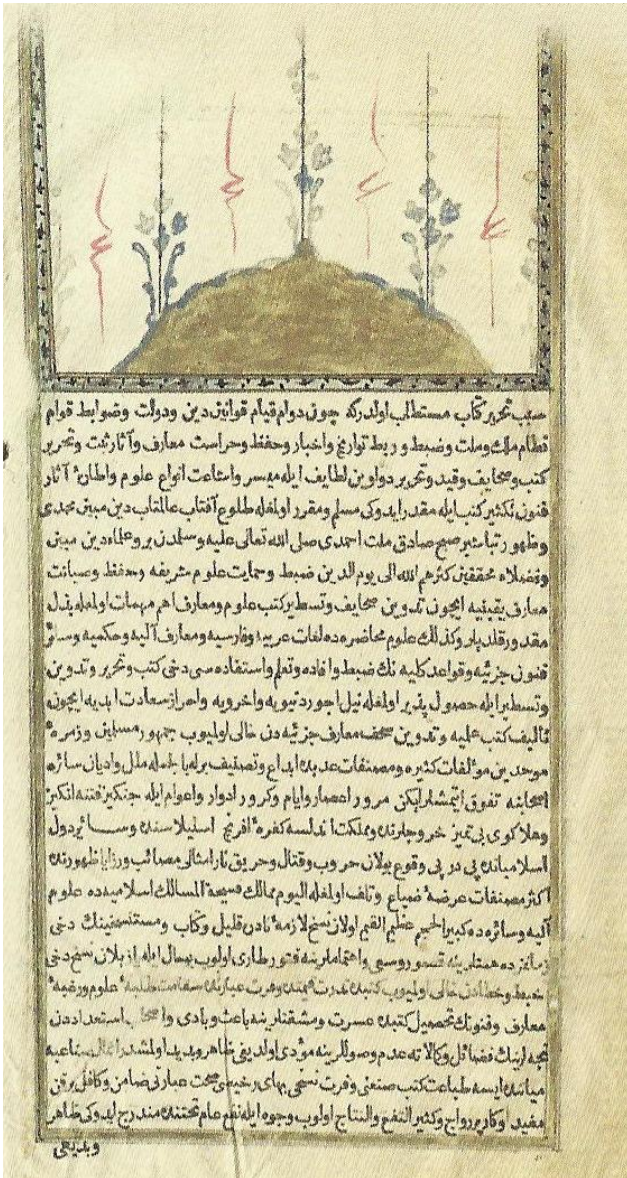 سبب تحرير كتاب مستطاب اولدر كه چون دوام قيام قوانين دين ودولت وضوابط قوام
نظام ملك وملت وضبط و ربط تواريخ واخبار وحفظ وحراست معارف وآثار ثبت وتحرير
كتب وصحايف وقيد وتحرير دواوين لطايف ايله ميسر واشاعت انواع علوم آثار
فنون تكثير كتب ايله مقدر ايدوكى مسلم ومقرر اولمغله طلوع آفتاب عالمتاب دين مبين محمدى
وظهور تباشير صبح صادق ملت احمدى صلى الله تعالى عليه وسلمدن برو علماء دين مبين
وفضلاء محققين كثرهم الله الى يوم الدين ضبط وحمايت علوم شريفه وحفظ وصيانت
معارف يقينيه ايچون تدوين صحايف وتسطير كتب علوم ومعارف اهم مهمات اولمغله بذل
مقدور قلديلر وكذلك علوم محاضره ده لغات عربيه وفارسيه ومعارف آليه وحكميه وسائر
فنون جزئيه وقواعد كليه نك ضبط وافاده وتعلم واستفاده سى دخى كتب وتحرير وتدوين
وتسطير ايله حصول پذير اولمغله نيل اجور دنيويه واخرويه واحراز سعادت ابديه ايچون
تأليف كتب عليه وتدوين صحف معارف جزئيه دن خالى اوليوب جمهور مسلمين وزمرهٔ
موحدين مؤلفات كثيره ومصنفات عديده ابداع وتصنيف برله باجمله ملل واديان سائره
اصحابنه تفوق ايتمشلر ايكن مرور اعصار وايام وكرور ادوار واعوام ايله جنكيز فتنه انكيز
وهلاكوى بى تميز خروجلرنده ومملكت اندلسه كفرهٔ افرنج استيلاسنده وسائر دول
اسلاميانده پى در پى وقوع بولان حروب وقتال وحريق نار امثالى مصائب ورزايا ظهورنده
اكثر مصنفات عرضهٔ ضياع وتلف اولمغله اليوم ممالك فسيحة المسالك اسلاميه ده علوم
آليه وسائره ده كبير الحجم عظيم القيم اولان نسخ لازمه نادر قليل وكتاب ومستنسخينك دخى
زمانمزده همتلرينه قصور وسعى واهتماملرينه فتور طارى اولوب ايله يازيلان نسخ دخى
ضبط وخطادن خالى اوليوب كتبده ندرت علوم ورغبهٔ
معارف وفنونك تحصيل كتبده عسرت ومشقتلرينه باعث وبادى استعداددن
فضائل وكمالاته عدم وصوللرينه مؤدى اولديغى ظاهر وبديد اولمشدر صناعيه
ميانده ايسه طباعت كتب صنعتى وفرت نسخى بهاى رخيصى صحت عبارتى ضامن وكافل بر فن
مفيد اوكار پر رواج وكثير النفع والنتاج اولوب وجوه ايله نفع عام تحتنده مندرج ايدوكى ظاهر
وبديعى